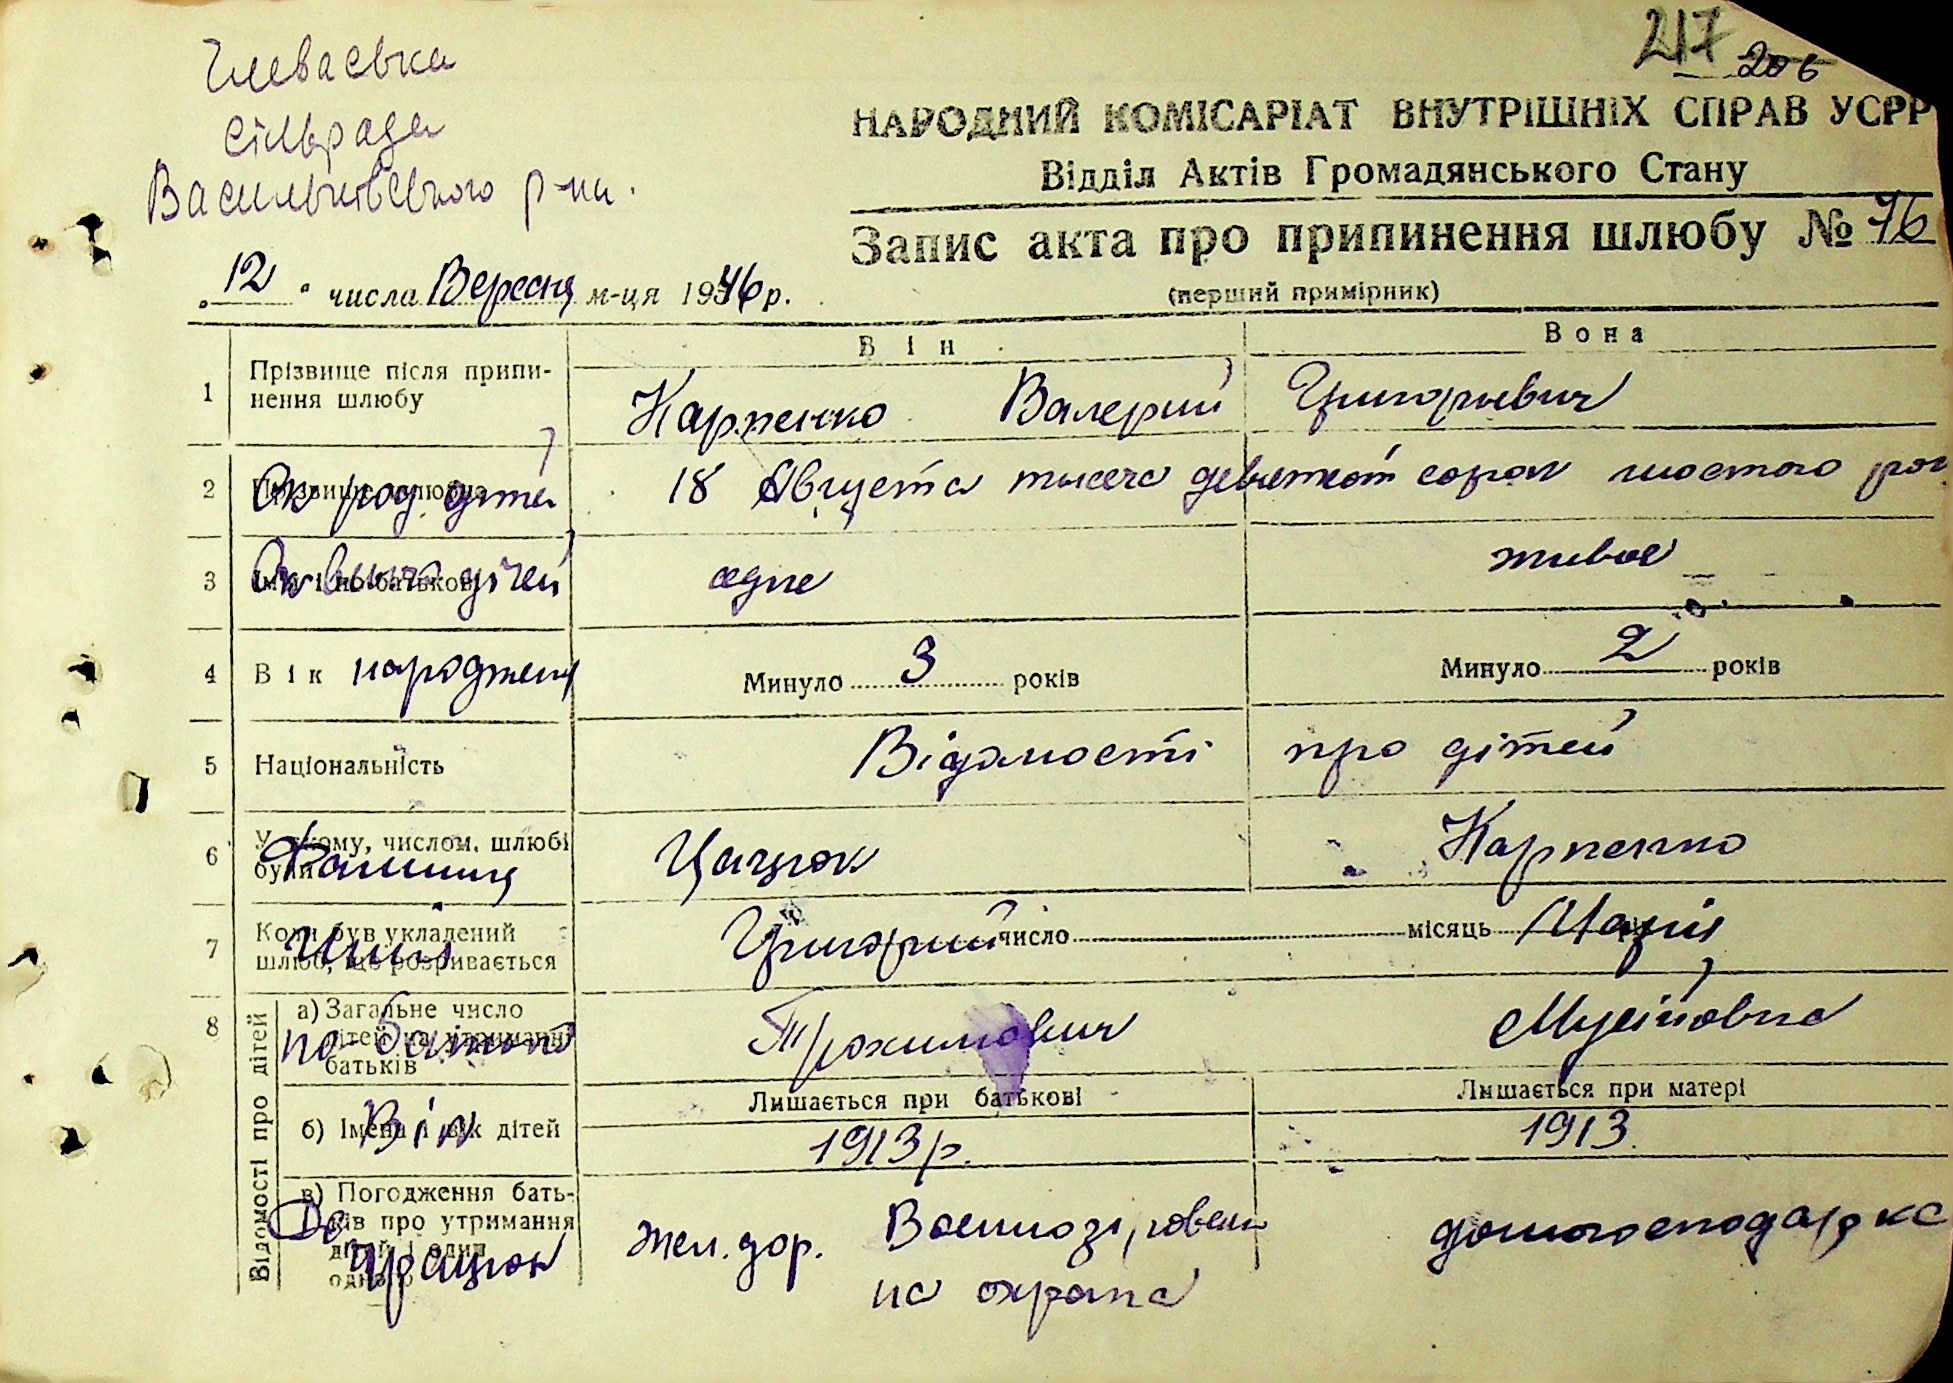 217 206
Глеваська
сільрада
Васильківського р-на.
НАРОДНИЙ КОМІСАРІАТ ВНУТРІШНІХ СПРАВ УСРР
Відділ Актів Громадянського Стану
Запис акта про припинення шлюбу № 76
(перший примірник)
„12" числа Вересня м-ця 1946 р.
Він Вона
1 Прізвище після припи-
нення шлюбу
Карпенко Валерий Григорьевич
2 род. дітей 18 Августа тисяча девятсот сорок шостого
3 дітей одне живое
4 Вік народжен Минуло 3 років Минуло 2 років
5 Національність Відомості про дітей
6 У якому, числом, шлюбі
були
Цацюк Карпенко
7 Коли був укладений
шлюб, що розривається
Григорий число місяць Марія
8 Відомості про дітей
а) Загальне число
дітей на утриманні
батьків
по-батькові Трохимович Мусіївна
Лишається при батькові Лишається при матері
б) Імена і вік дітей
Вік 1913 р. 1913.
в) Погодження бать-
ків про утримання
дітей і один
одного
Де працює жел. дор. на охрана домогосподарка